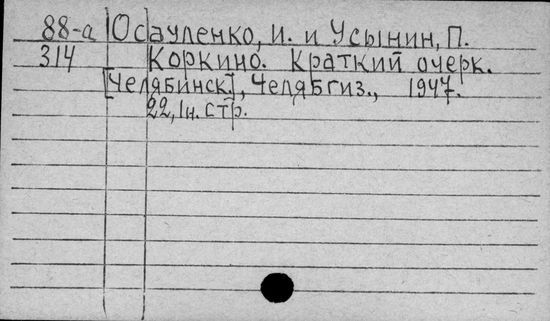 88-а Осауленко, И. и Усынин, П.
314 Коркино. Краткий очерк.
[Челябинск], Челябгиз., 1947.
22, 1н. стр.